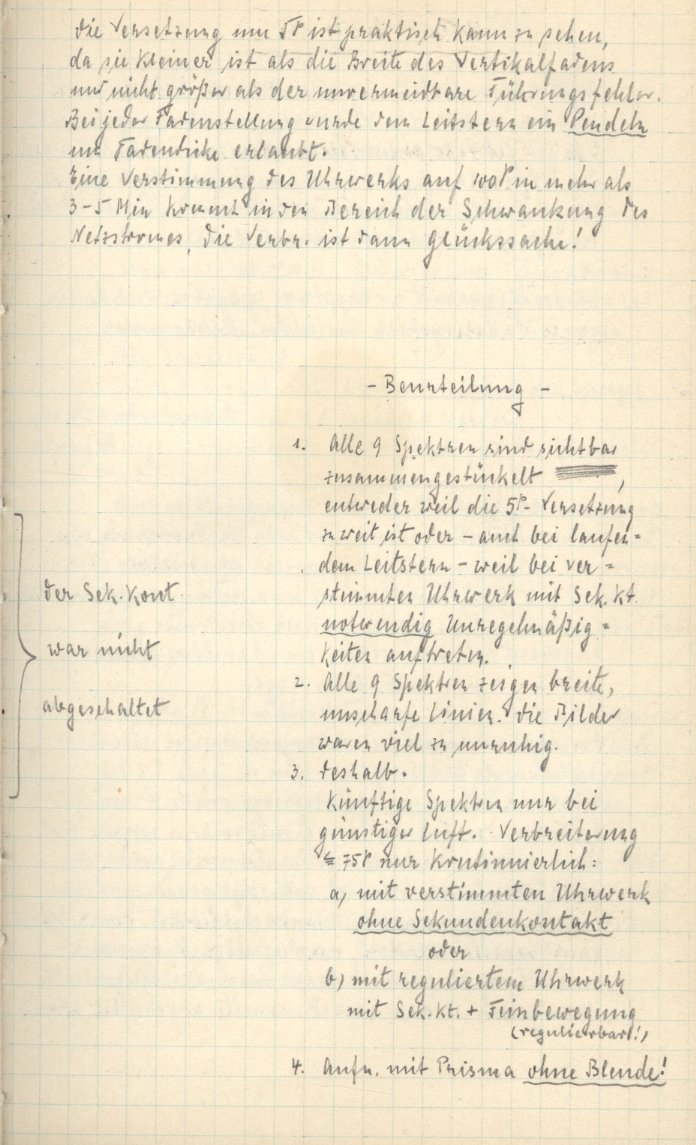 Die Versetzung um 5p ist praktisch kaum zu sehen,
da sie kleiner ist als die Breite des Vertikalfadens
und nicht größer als der unvermeidbare Führungsfehler.
Bei jeder Fadenstellung wurde dem Leitstern ein Pendeln
um Fadendicke erlaubt.
Eine Verstimmung des Uhrwerks auf 100p in mehr als
3-5 Min kommt in den Bereich der Schwankung des
Netzstromes, die Verbr. ist dann Glückssache!
- Beurteilung -
1. Alle 9 Spektren sind sichtbar
zusammengestückelt ,
entweder weil die 5p- Versetzung
zu weit ist oder - auch bei laufen=
dem Leitstern - weil bei ver=
stimmten Uhrwerk mit Sek.Kt.
notwendig Unregelmäßig=
keiten auftreten.
der Sek.Kont
war nicht
abgeschaltet
2. Alle 9 Spektren zeigen breite,
unscharfe Linien. Die Bilder
waren viel zu unruhig.
3. Deshalb.
Künftige Spektren nur bei
günstiger Luft. Verbreiterung
75p nur Kontinuierlich:
a) mit verstimmten Uhrwerk
ohne Sekundenkontakt
oder
b) mit reguliertem Uhrwerk
mit Sek.Kt. + Feinbewegung
(regulierbar!)
4. Aufn. mit Prisma ohne Blende!